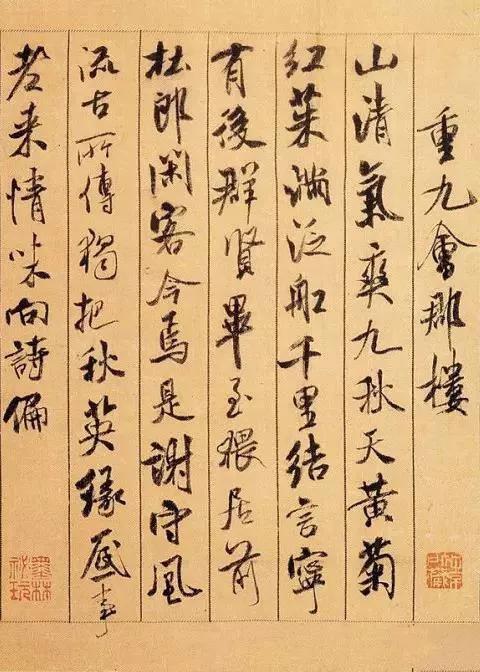 重九會郡樓
山清氣爽九秋天黃菊
紅茱滿泛船千里結言寧
有後群賢畢至猥居前
杜郎閑客今焉是謝守風
流古所傳獨把秋英緣底事
老来情味向詩偏
墨林秘玩